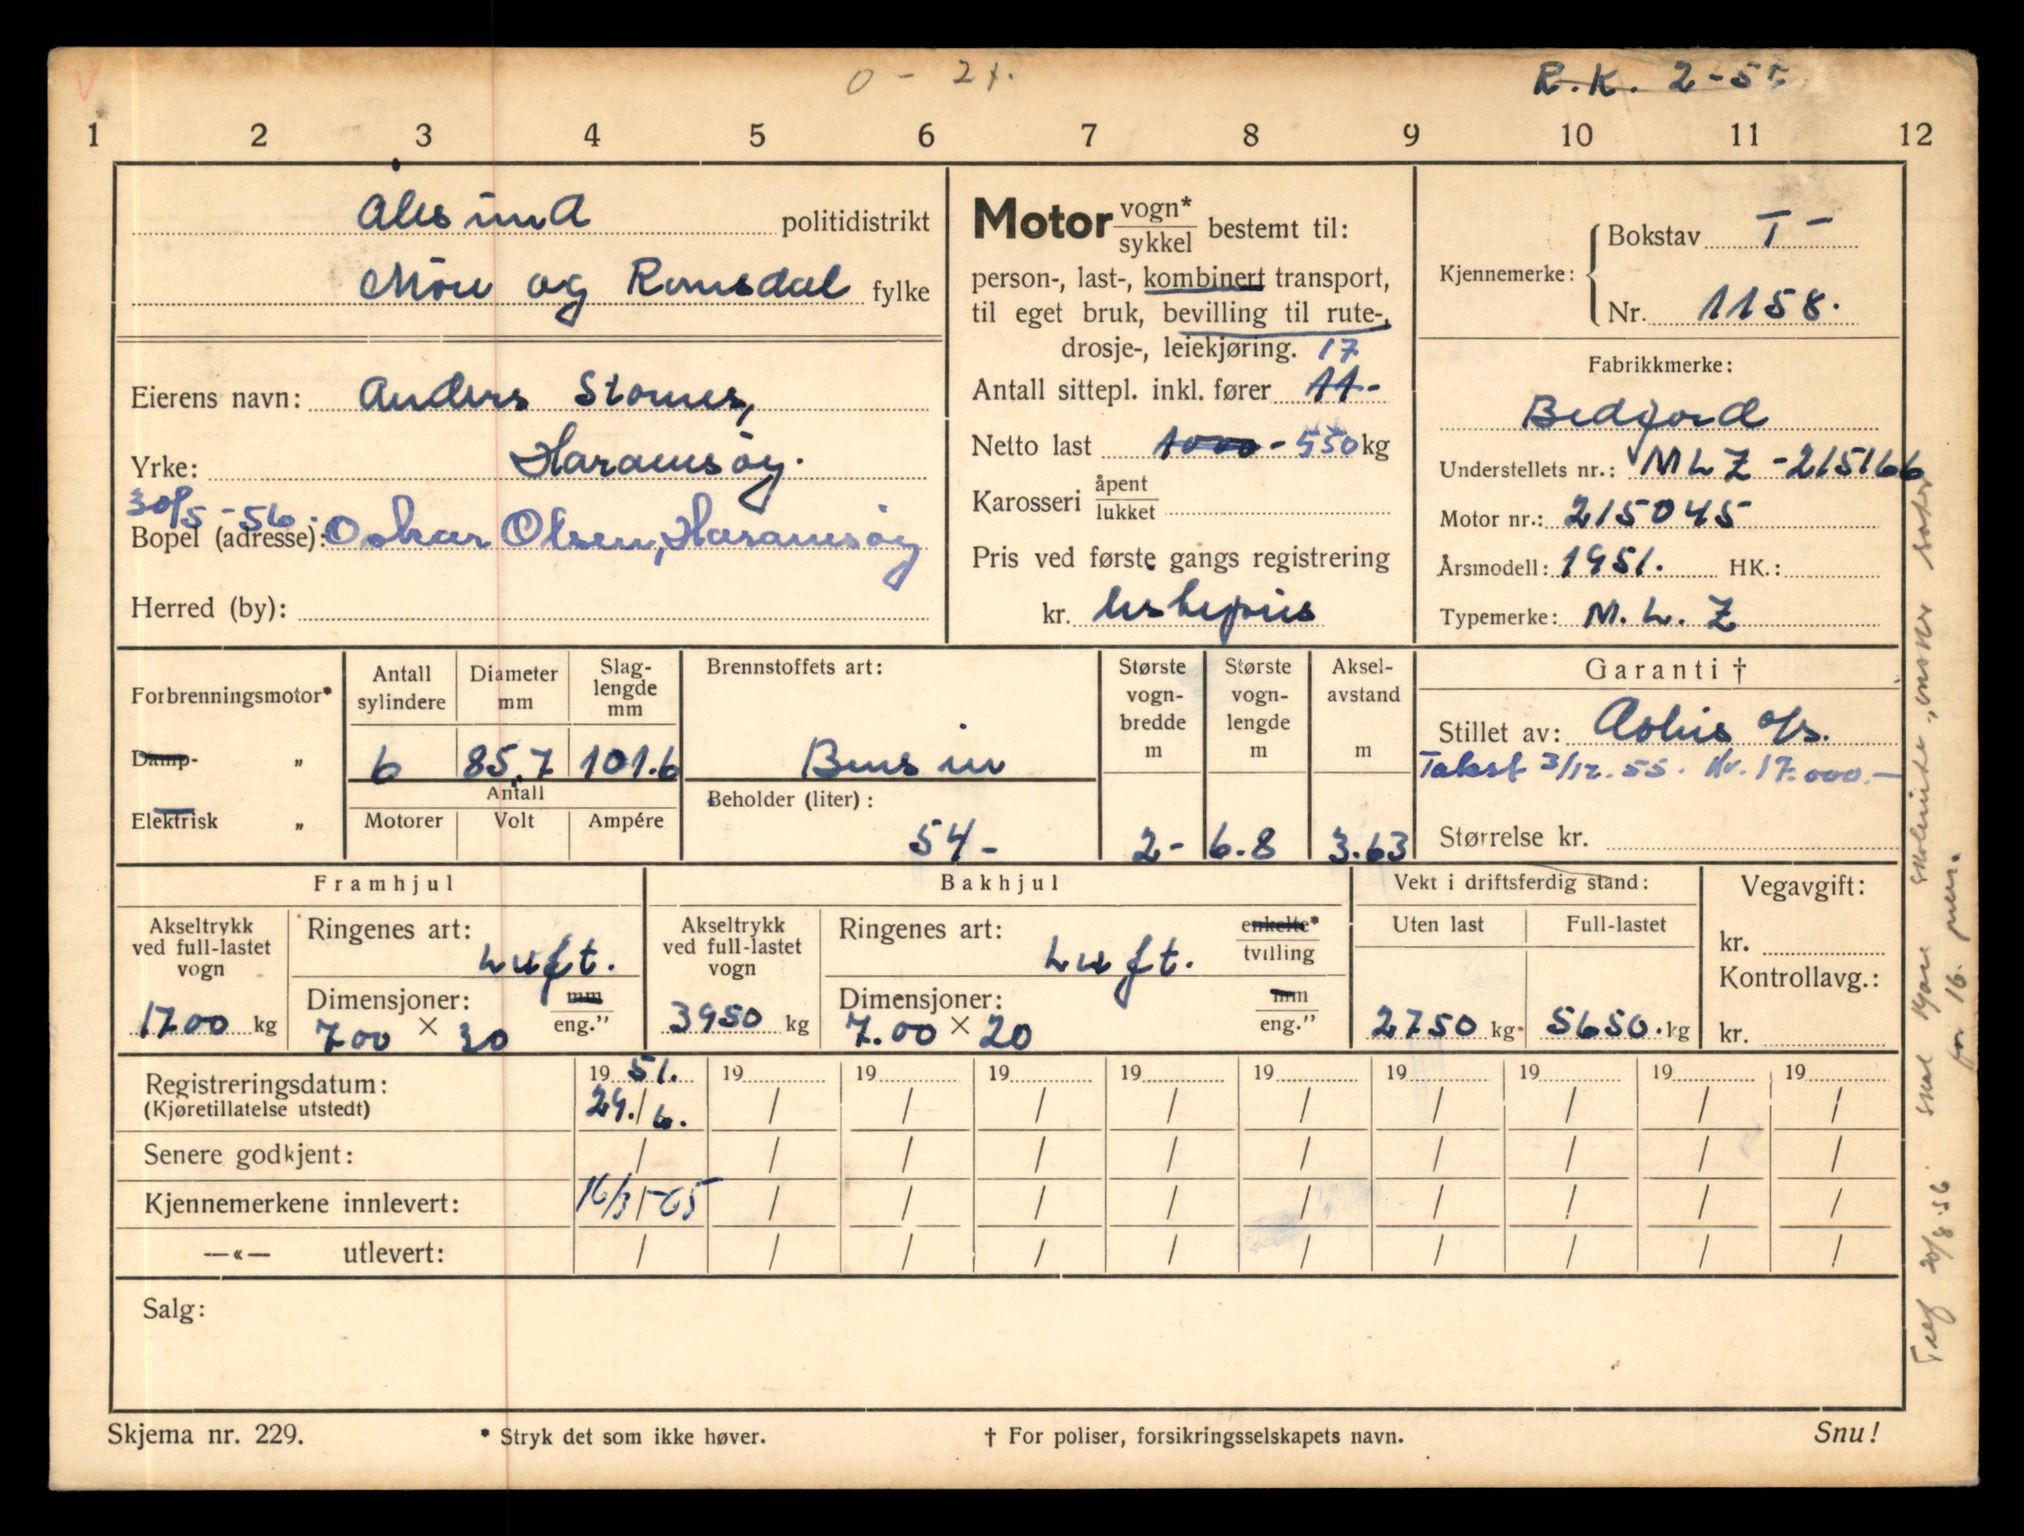 0 - 2
R.K. 2-5
1 2 3 4 5 6 7 8 9 10 11 12
Alesund politidistrikt
Möre og Romsdal fylke
Eierens navn: Anders Stornes,
Yrke: Haramsöy.
30/5 - 56.
Bopel (adresse): Oskar Olsen, Haramsöy
Herred (by):
Motor vogn* / sykkel bestemt til:
person-, last-, kombinert transport,
til eget bruk, bevilling til rute-,
drosje-, leiekjøring. 17
Antall sittepl. inkl. fører 11-
Netto last 1000 - 550 kg
Karosseri åpent / lukket
Pris ved første gangs registrering
kr.
Kjennemerke: Bokstav T-
Nr. 1158.
Fabrikkmerke:
Bedford
Understellets nr.: MLZ - 215166
Motor nr.: 215045
Årsmodell: 1951. HK.:
Typemerke: M. L. Z
Forbrenningsmotor*
Damp- „
Elektrisk „
Antall sylindere Diameter mm Slaglengde mm
6 85.7 101.6
Antall
Motorer Volt Ampére
Brennstoffets art:
Bensin
Beholder (liter):
54-
Største vognbredde m Største vognlengde m Akselavstand m
2- 6.8 3.63
Garanti †
Stillet av: a/s.
Takst 3/12. 55. Kr. 17.000.-
Størrelse kr.
Framhjul
Akseltrykk ved full-lastet vogn
1700 kg
Ringenes art: Luft.
Dimensjoner: mm / eng."
7.00 × 20
Bakhjul
Akseltrykk ved full-lastet vogn
3950 kg
Ringenes art: Luft. enkelte* / tvilling
Dimensjoner: mm / eng."
7.00 × 20
Vekt i driftsferdig stand:
Uten last Full-lastet
2750 kg 5650. kg
Vegavgift:
kr.
Kontrollavg.:
kr.
Registreringsdatum: 19 51. 19 19 19 19 19 19 19 19 19
(Kjøretillatelse utstedt) 29./6. / / / / / / / / /
Senere godkjent: / / / / / / / / / /
Kjennemerkene innlevert: 16/3 -65 / / / / / / / / /
—«— utlevert: / / / / / / / / / /
Salg:
Skjema nr. 229. * Stryk det som ikke høver. † For poliser, forsikringsselskapets navn. Snu!
20/8.56 skal
for 16. pers.